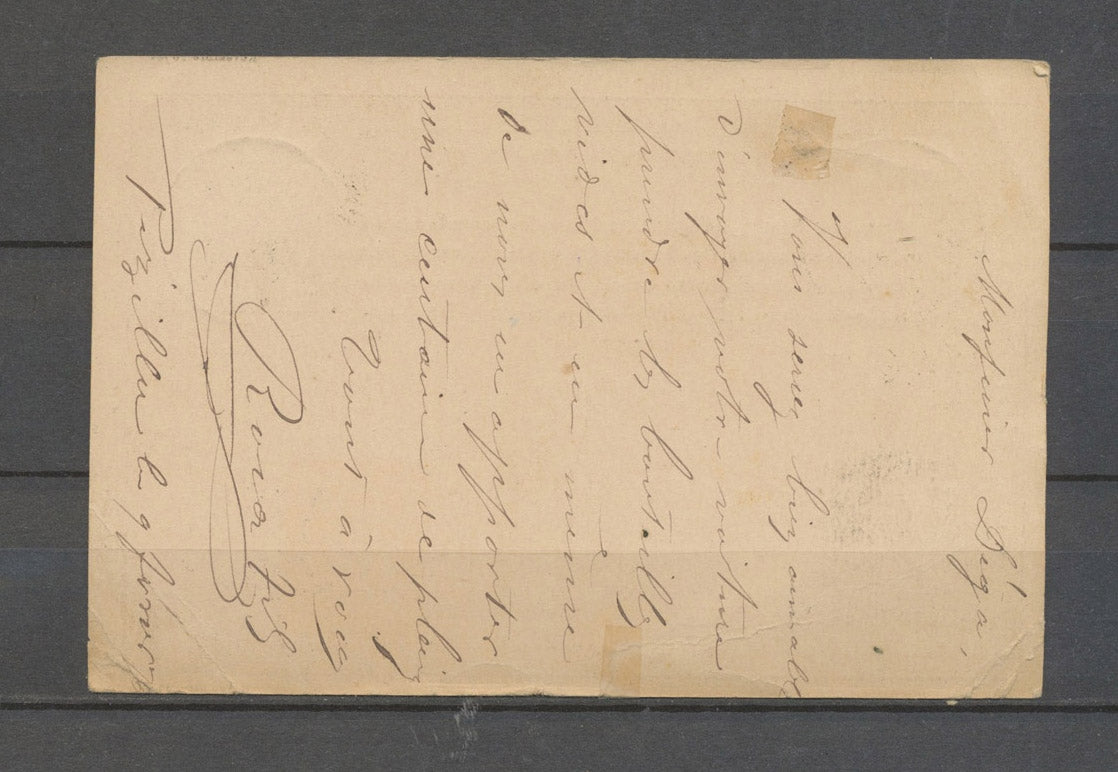 Monsieur Séga,
Vous serez bien aimable
d'envoyer votre voiture
prendre les bouteilles
vides et en même
de nous en apporter
une certaine de pleines
Tout à vous
Pezilla le 9 février